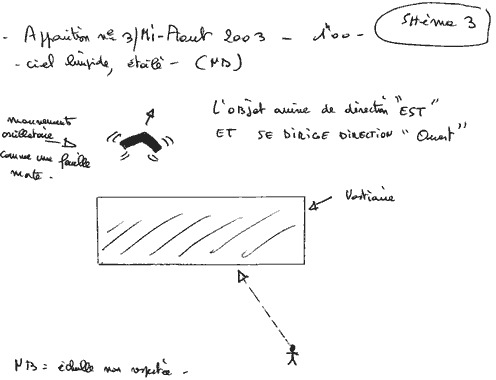 Shéma 3
- Apparition n° 3/Mi-Aout 2003 - 1h00 -
- ciel limpide, étoilé - (NB)
L'objet arrive de direction "EST"
ET SE DIRIGE DIRECTION "Ouest"
mouvement
oscillatoire
comme une feuille
morte.
Vestiaire
NB = échelle non respectée.